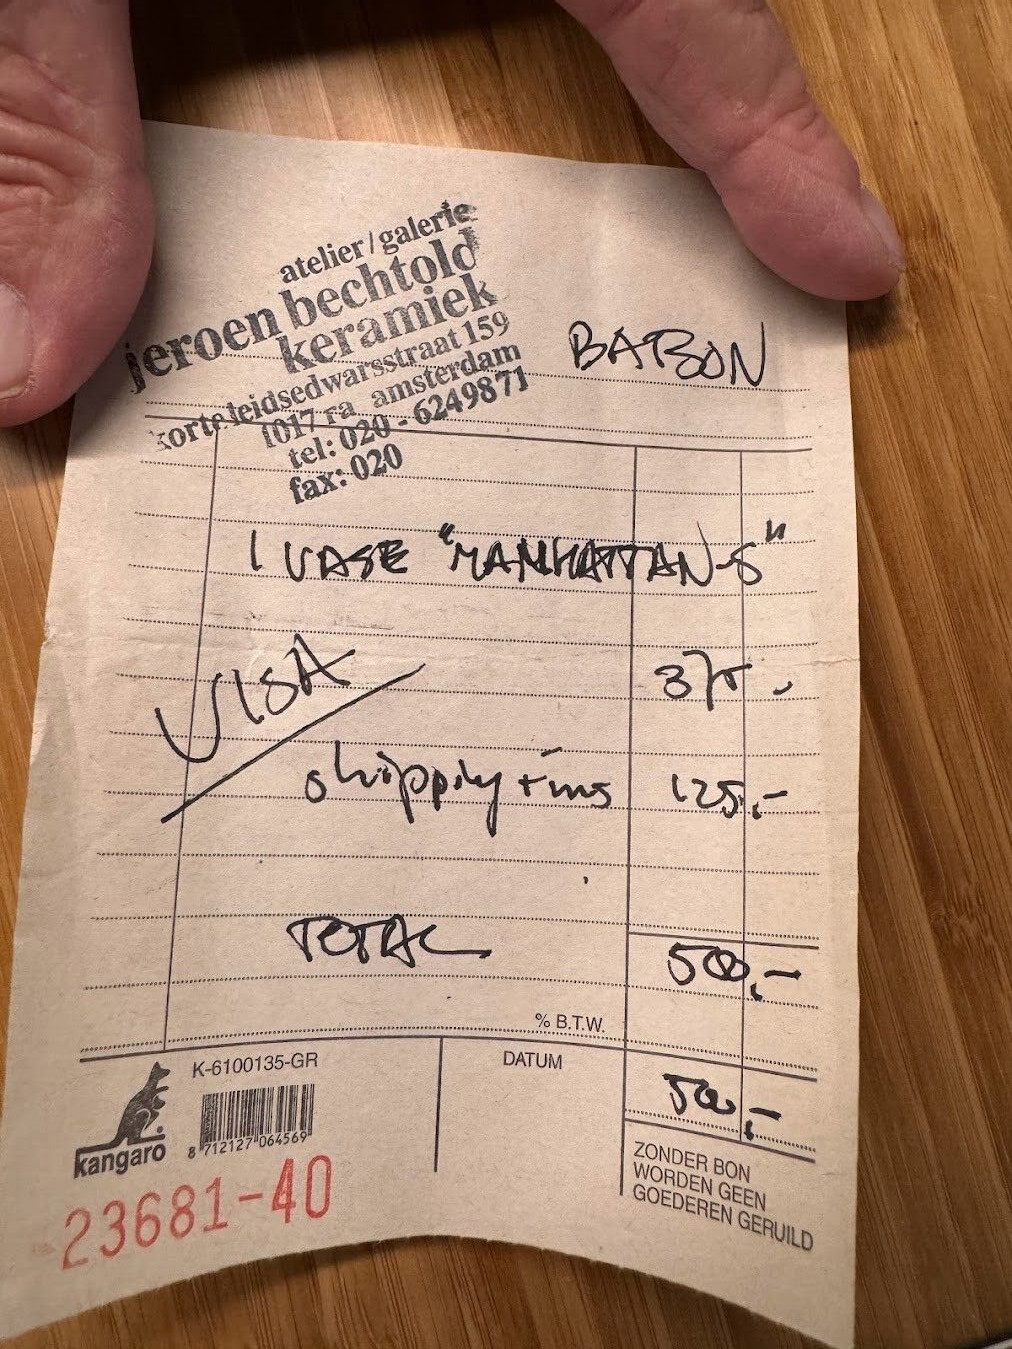 atelier / galerie
jeroen bechtold
keramiek
korte leidsedwarsstraat 159
1017 ra amsterdam
tel: 020 - 6249871
fax: 020
BABON
1 VASE "MANHATTAN-S"
375.-
VISA
shipping + ins 125.-
TOTAL 500.-
% B.T.W.
K-6100135-GR
DATUM
500.-
8 712127 064569
kangaro
ZONDER BON
WORDEN GEEN
GOEDEREN GERUILD
23681-40